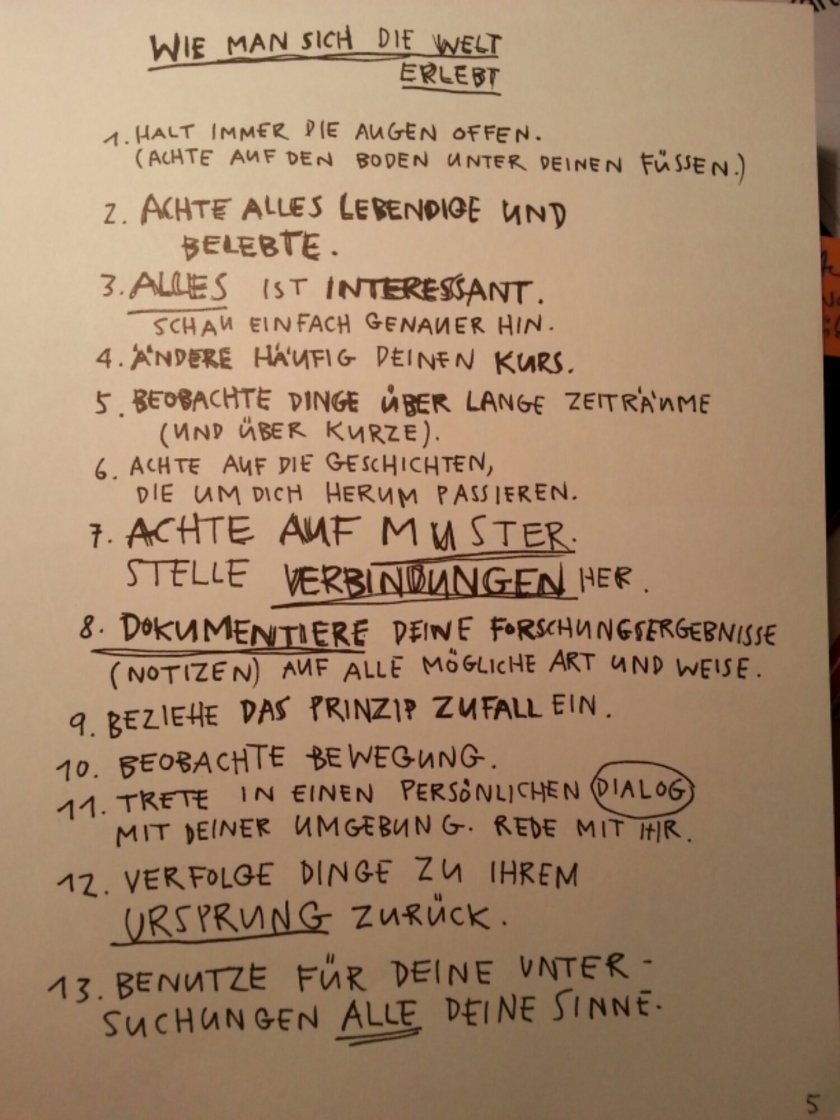 WIE MAN SICH DIE WELT
ERLEBT
1. HALT IMMER DIE AUGEN OFFEN.
(ACHTE AUF DEN BODEN UNTER DEINEN FÜSSEN.)
2. ACHTE ALLES LEBENDIGE UND
BELEBTE.
3. ALLES IST INTERESSANT.
SCHAU EINFACH GENAUER HIN.
4. ÄNDERE HÄUFIG DEINEN KURS.
5. BEOBACHTE DINGE ÜBER LANGE ZEITRÄUME
(UND ÜBER KURZE).
6. ACHTE AUF DIE GESCHICHTEN,
DIE UM DICH HERUM PASSIEREN.
7. ACHTE AUF MUSTER.
STELLE VERBINDUNGEN HER.
8. DOKUMENTIERE DEINE FORSCHUNGSERGEBNISSE
(NOTIZEN) AUF ALLE MÖGLICHE ART UND WEISE.
9. BEZIEHE DAS PRINZIP ZUFALL EIN.
10. BEOBACHTE BEWEGUNG.
11. TRETE IN EINEN PERSÖNLICHEN DIALOG
MIT DEINER UMGEBUNG. REDE MIT IHR.
12. VERFOLGE DINGE ZU IHREM
URSPRUNG ZURÜCK.
13. BENUTZE FÜR DEINE UNTER-
SUCHUNGEN ALLE DEINE SINNE.
5